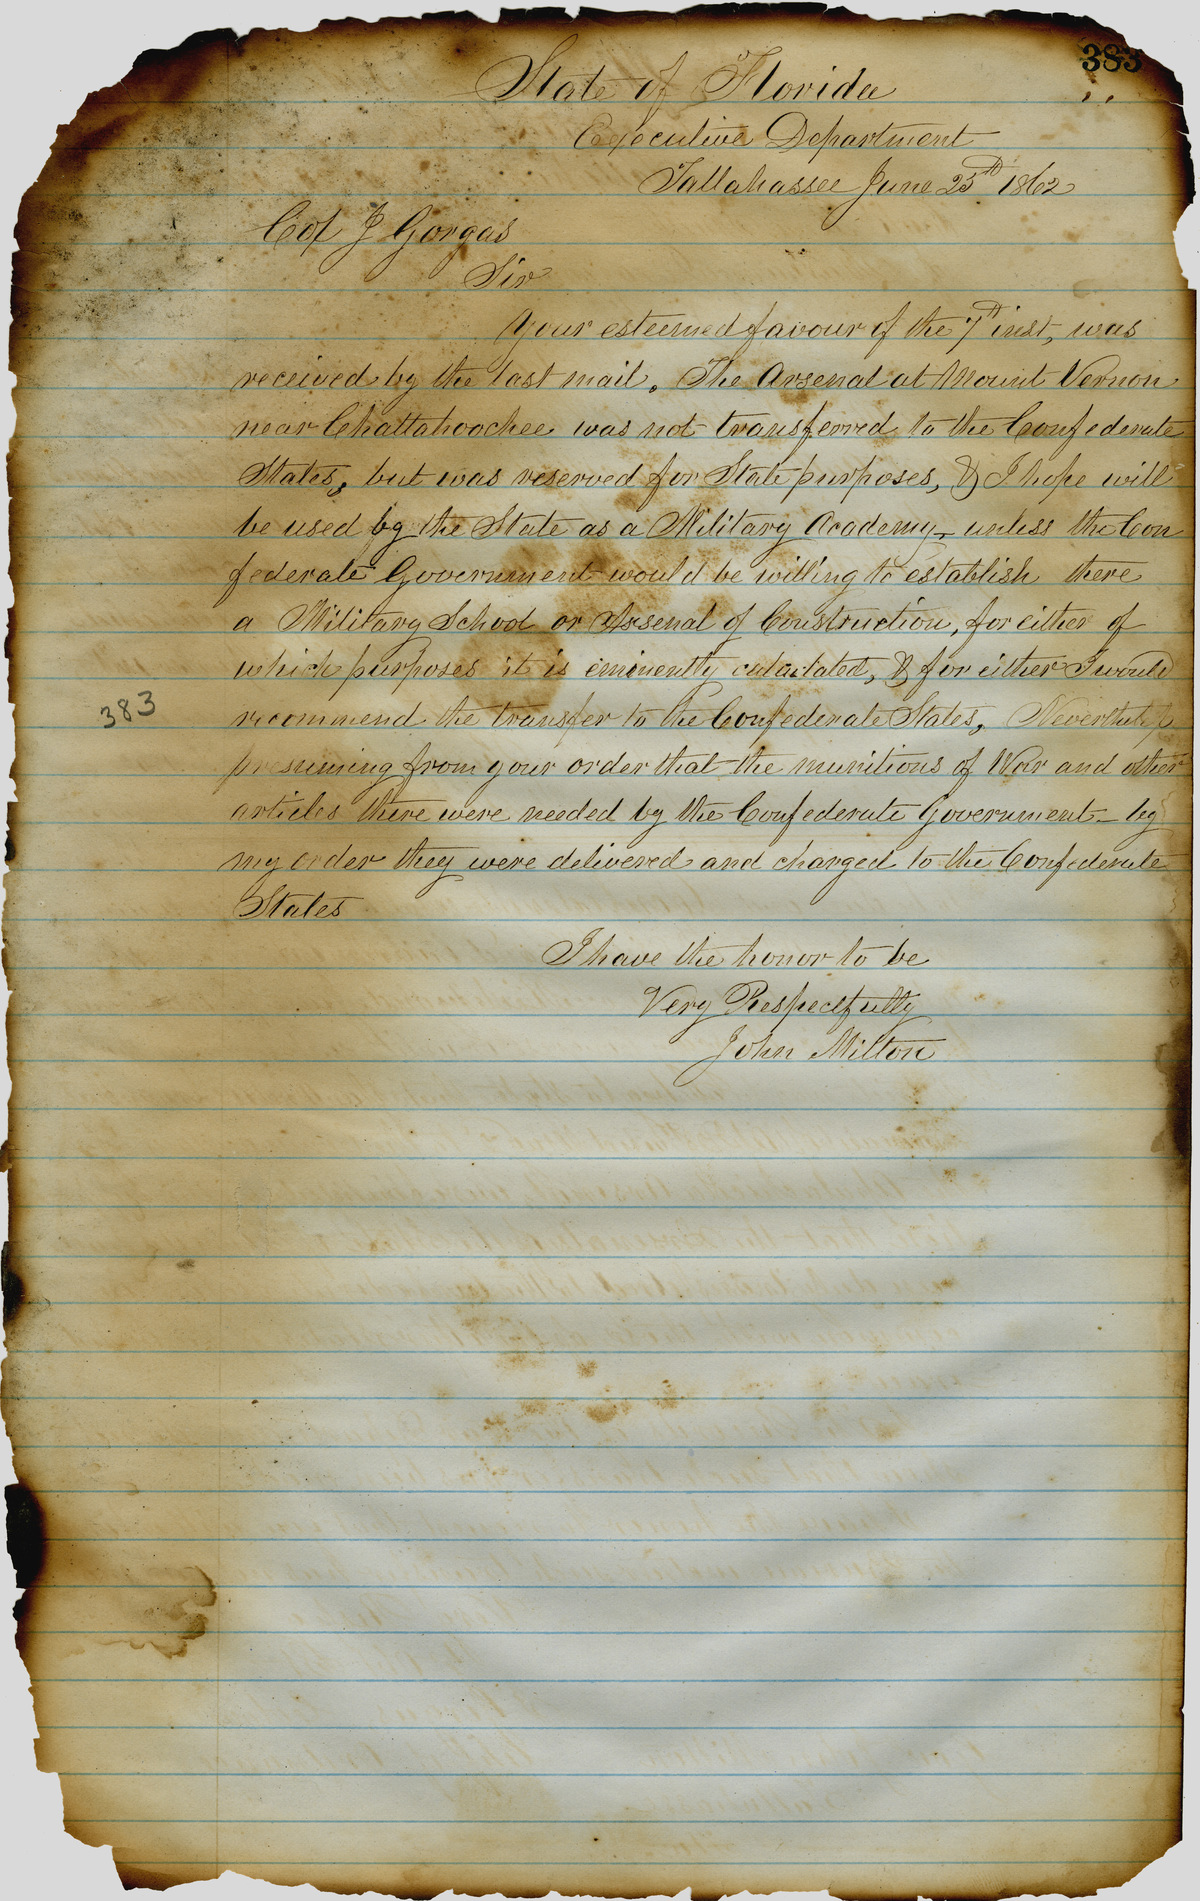 383
State of Florida
Executive Department
Tallahassee June 25th 1862
Col J Gorgas
Sir
Your esteemed favour of the 7th inst, was
received by the last mail. The Arsenal at Mount Vernon
near Chattahoochee was not transferred to the Confederate
States, but was reserved for State purposes, & I hope will
be used by the State as a Military Academy – unless the Con
federate Government would be willing to establish there
a Military School or Arsenal of Construction, for either of
which purposes it is eminently calculated, & for either I would
recommend the transfer to the Confederate States, Nevertheless
presuming from your order that the munitions of War and other
articles there were needed by the Confederate Government – by
my order they were delivered and charged to the Confederate
States
I have the honor to be
Very Respectfully
John Milton
383